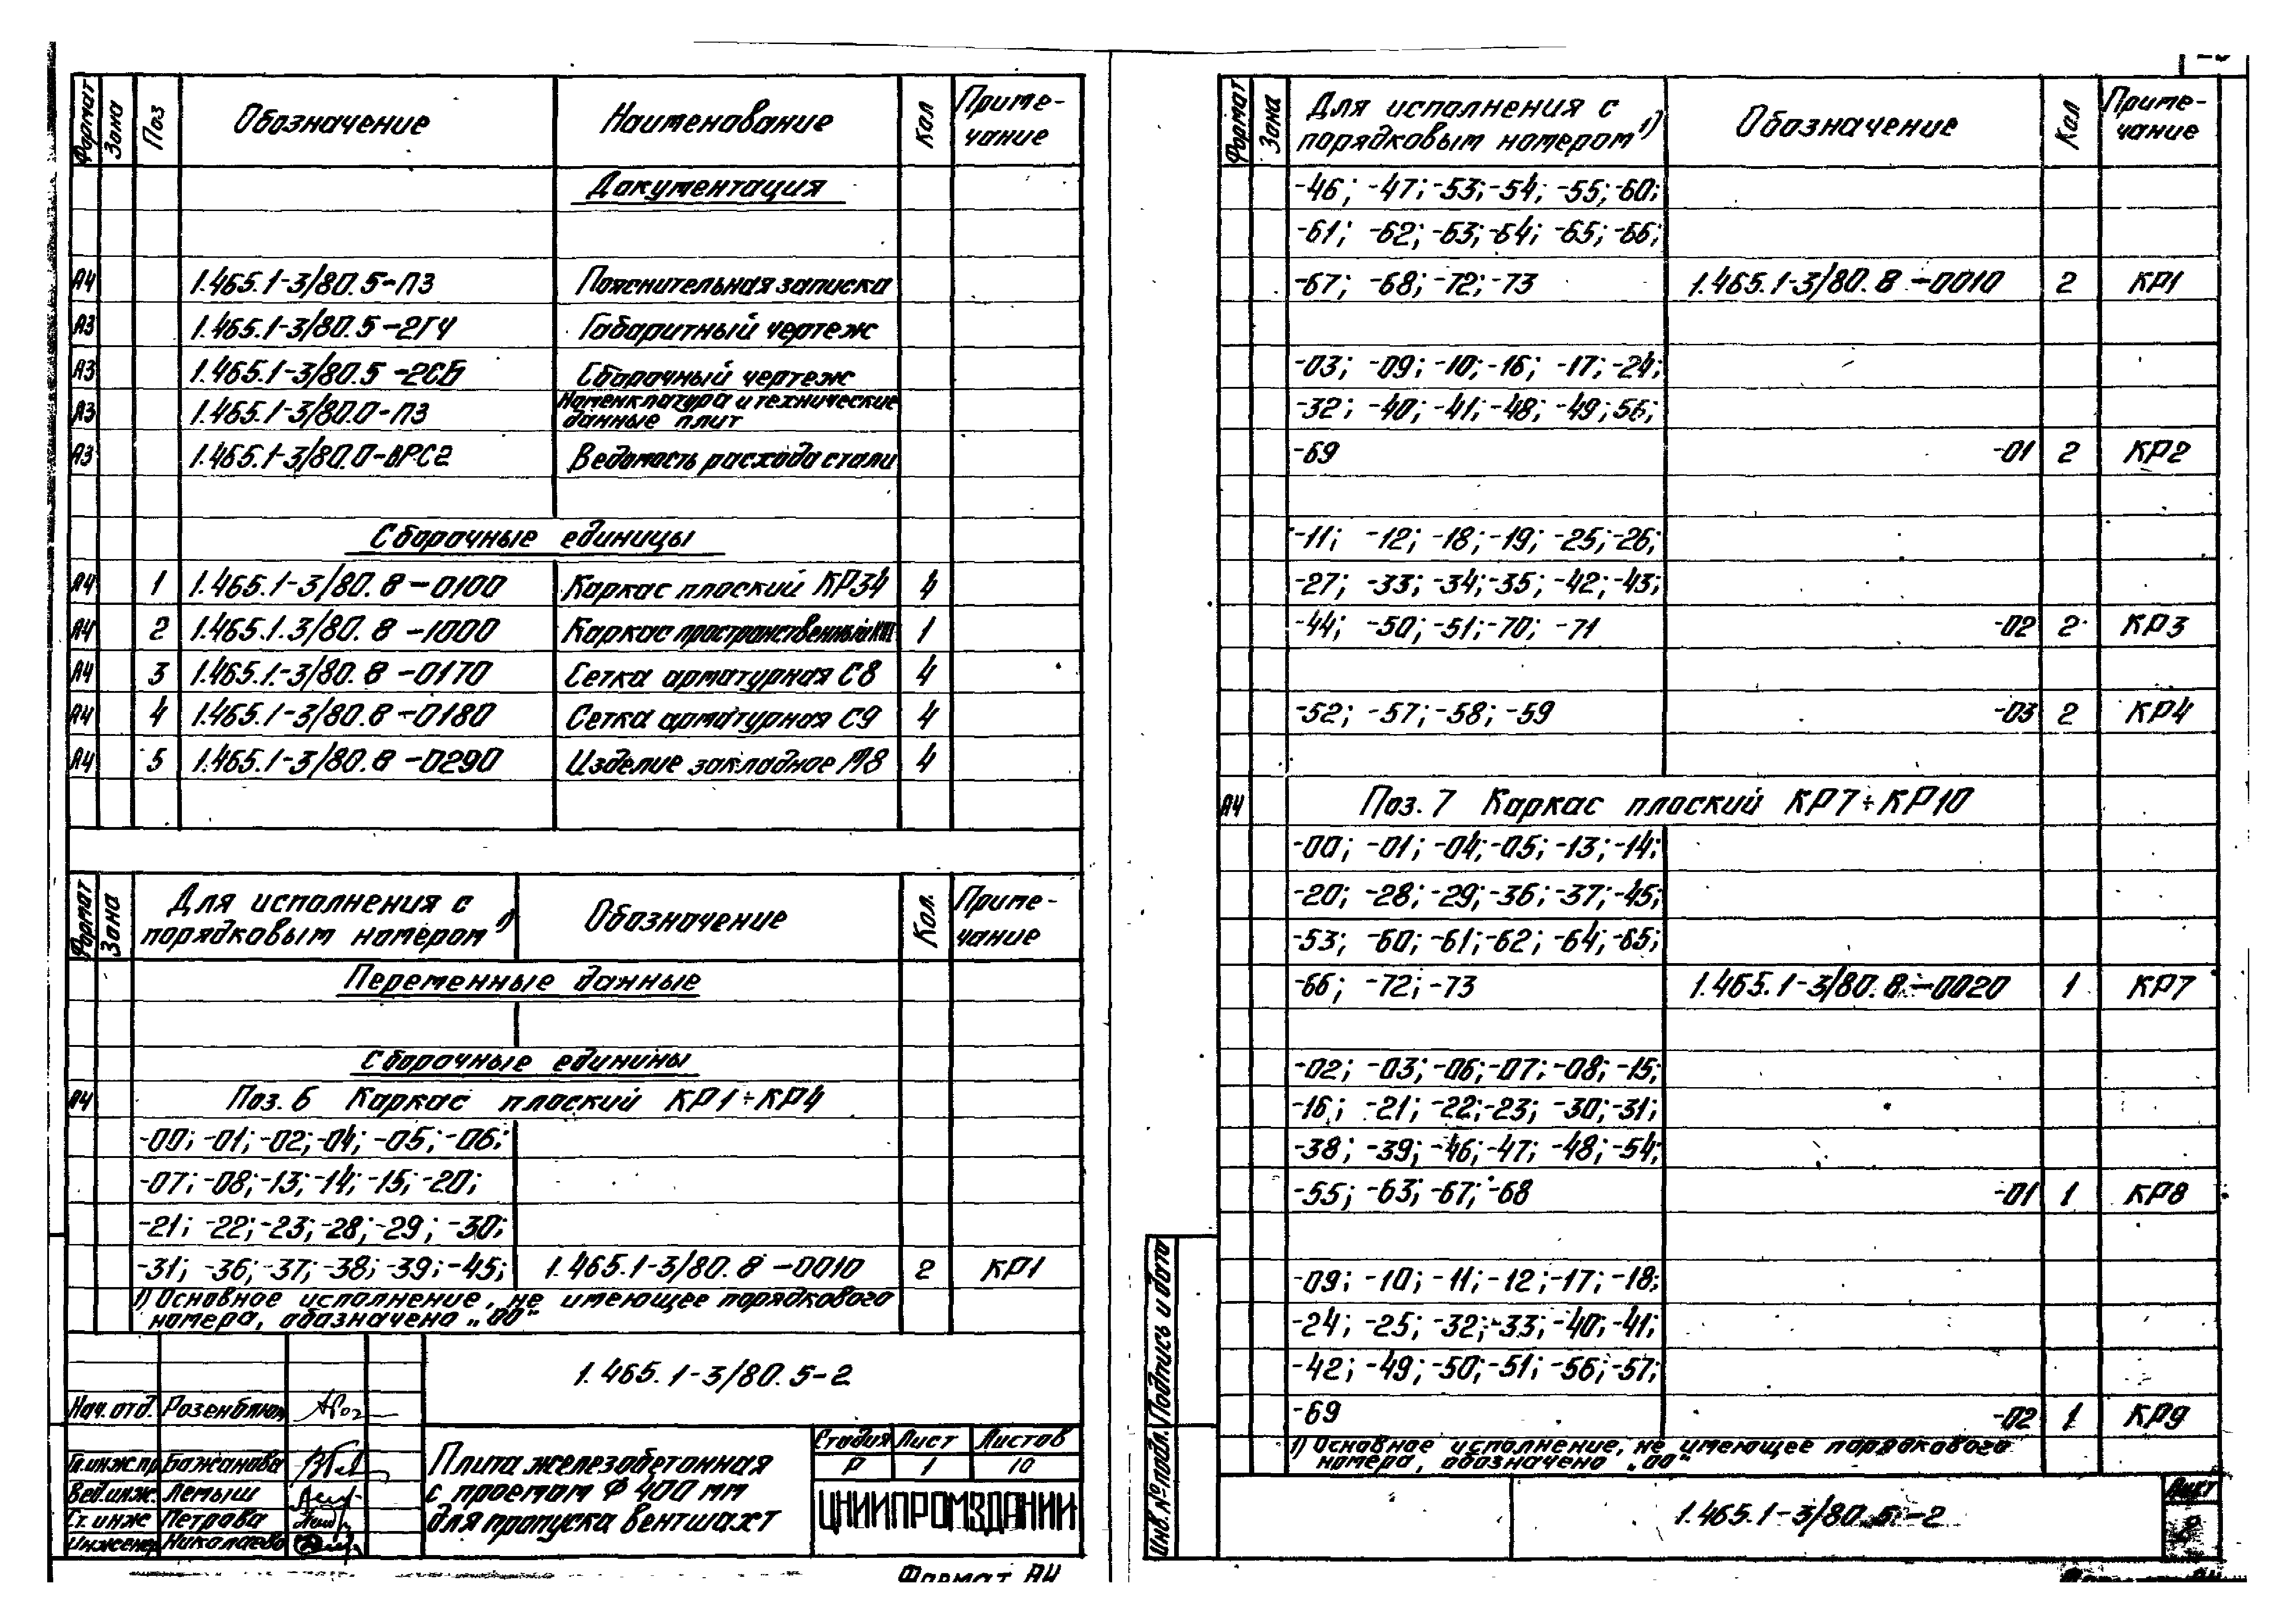 Формат Зона Поз Обозначение Наименование Кол Приме-
чание
Документация
А4 1.465.1-3/80.5-ПЗ Пояснительная записка
А3 1.465.1-3/80.5-2ГЧ Габаритный чертеж
А3 1.465.1-3/80.5-2СБ Сборочный чертеж
А3 1.465.1-3/80.0-ПЗ Номенклатура и технические
данные плит
А3 1.465.1-3/80.0-ВРС2 Ведомость расхода стали
Сборочные единицы
А4 1 1.465.1-3/80.8-0100 Каркас плоский КР34 4
А4 2 1.465.1.3/80.8-1000 Каркас пространственный 1
А4 3 1.465.1.-3/80.8-0170 Сетка арматурная С8 4
А4 4 1.465.1-3/80.8-0180 Сетка арматурная С9 4
А4 5 1.465.1-3/80.8-0290 Изделие закладное М8 4
Формат Зона Для исполнения с
порядковым номером 1) Обозначение Кол. Приме-
чание
Переменные данные
Сборочные единицы
А4 Поз. 6 Каркас плоский КР1÷КР4
-00; -01; -02; -04; -05; -06;
-07; -08; -13; -14; -15; -20;
-21; -22; -23; -28; -29; -30;
-31; -36; -37; -38; -39; -45; 1.465.1-3/80.8-0010 2 КР1
1) Основное исполнение, не имеющее порядкового
номера, обозначено „00"
1.465.1-3/80.5-2
Нач. отд. Розенблюм
Гл.инж.пр. Бажанова
Вед.инж. Лемыш
Ст. инж Петрова
Инженер Николаева
Плита железобетонная
с проемом Ф 400 мм
для пропуска вентшахт
Стадия Лист Листов
Р 1 10
ЦНИИПРОМЗДАНИИ
Формат А4
Формат Зона Для исполнения с
порядковым номером 1) Обозначение Кол Приме-
чание
-46; -47; -53; -54; -55; -60;
-61; -62; -63; -64; -65; -66;
-67; -68; -72; -73 1.465.1-3/80.8-0010 2 КР1
-03; -09; -10; -16; -17; -24;
-32; -40; -41; -48; -49; 56;
-69 -01 2 КР2
-11; -12; -18; -19; -25; -26;
-27; -33; -34; -35; -42; -43;
-44; -50; -51; -70; -71 -02 2 КР3
-52; -57; -58; -59 -03 2 КР4
А4 Поз. 7 Каркас плоский КР7÷КР10
-00; -01; -04; -05; -13; -14;
-20; -28; -29; -36; -37; -45;
-53; -60; -61; -62; -64; -65;
-66; -72; -73 1.465.1-3/80.8-0020 1 КР7
-02; -03; -06; -07; -08; -15;
-16; -21; -22; -23; -30; -31;
-38; -39; -46; -47; -48; -54;
-55; -63; -67; -68 -01 1 КР8
-09; -10; -11; -12; -17; -18;
-24; -25; -32; -33; -40; -41;
-42; -49; -50; -51; -56; -57;
-69 -02 1 КР9
1) Основное исполнение, не имеющее порядкового
номера, обозначено „00"
Инв.№подл. Подпись и дата
1.465.1-3/80.5-2
Лист